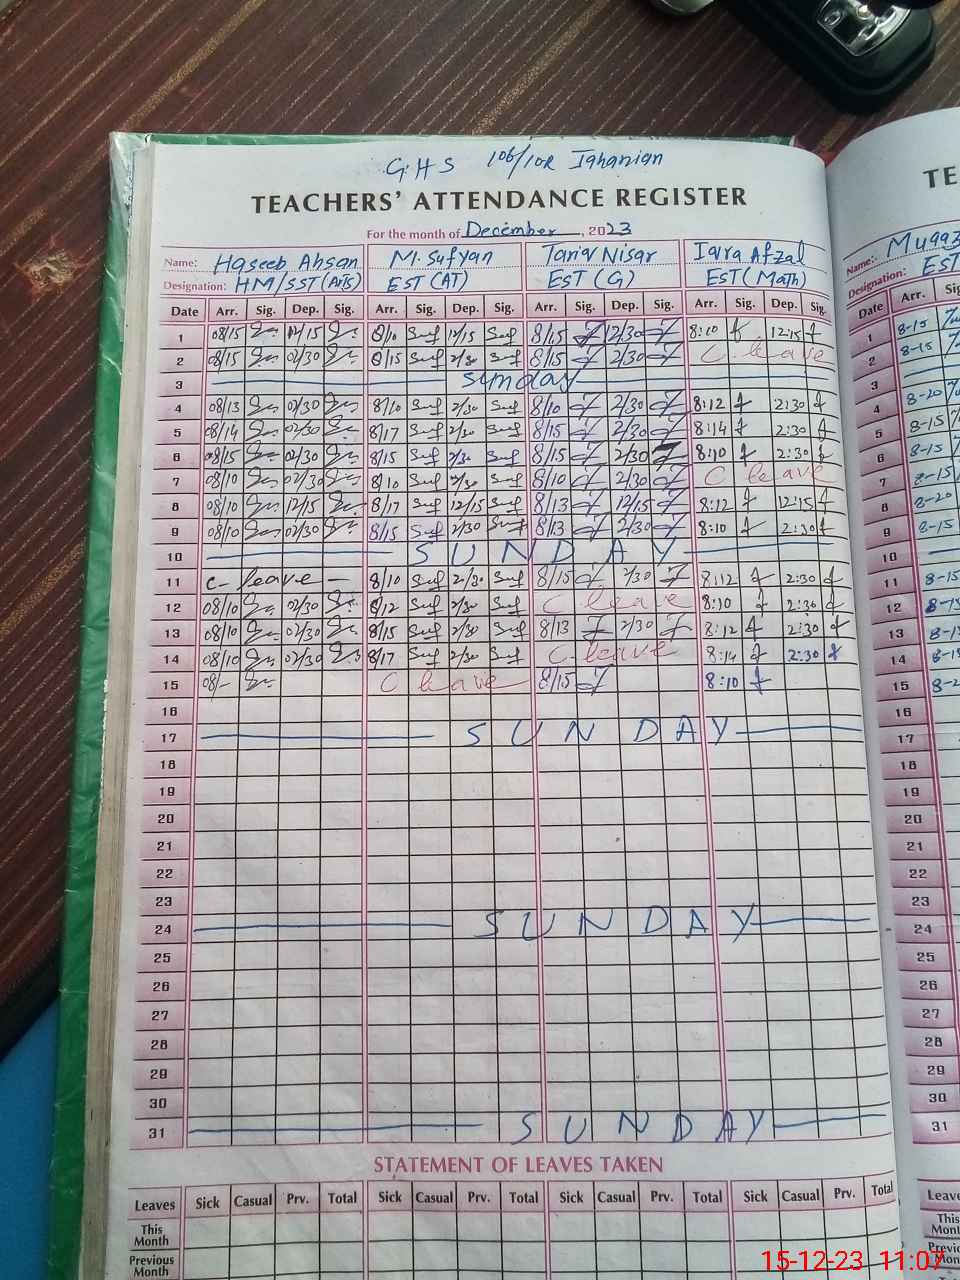 G.H.S 106/10R Jahanian
TEACHERS' ATTENDANCE REGISTER
For the month of December, 2023
Name: Haseeb Ahsan M. Sufyan Tariq Nisar Iqra Afzal
Designation: HM/SST (Arts) EST (AT) EST (G) EST (Math)
Date Arr. Sig. Dep. Sig. Arr. Sig. Dep. Sig. Arr. Sig. Dep. Sig. Arr. Sig. Dep. Sig.
1 08/15 12/15 8/10 Suf 12/15 Suf 8/15 2/30 8:10 12:15
2 08/15 02/30 8/15 Suf 2/30 Suf 8/15 2/30 C. leave
3 Sunday
4 08/13 02/30 8/10 Suf 2/30 Suf 8/10 2/30 8:12 2:30
5 08/14 02/30 8/17 Suf 2/30 Suf 8/15 2/30 8:14 2:30
6 08/15 02/30 8/15 Suf 2/30 Suf 8/15 2/30 8:10 2:30
7 08/10 02/30 8/10 Suf 2/30 Suf 8/10 2/30 C leave
8 08/10 12/15 8/17 Suf 12/15 Suf 8/13 12/15 8:12 12:15
9 08/10 02/30 8/15 Suf 2/30 Suf 8/13 2/30 8:10 2:30
10 SUNDAY
11 C- leave - 8/10 Suf 2/30 Suf 8/15 2/30 8:12 2:30
12 08/10 02/30 8/12 Suf 2/30 Suf C leave 8:10 2:30
13 08/10 02/30 8/15 Suf 2/30 Suf 8/13 2/30 8:12 2:30
14 08/10 02/30 8/17 Suf 2/30 Suf C. leave 8:14 2:30
15 08/- C leave 8/15 8:10
16
17 SUNDAY
18
19
20
21
22
23
24 SUNDAY
25
26
27
28
29
30
31 SUNDAY
STATEMENT OF LEAVES TAKEN
Leaves Sick Casual Prv. Total Sick Casual Prv. Total Sick Casual Prv. Total Sick Casual Prv. Total
This Month
Previous Month
TE
Name:
Designation: EST
Date Arr. Sig.
1 8-15
2 8-15
3
4 8-20
5 8-15
6 8-15
7 8-15
8 8-20
9 8-15
10
11 8-15
12
13
14
15
16
17
18
19
20
21
22
23
24
25
26
27
28
29
30
31
Leave
This
Month
15-12-23 11:07